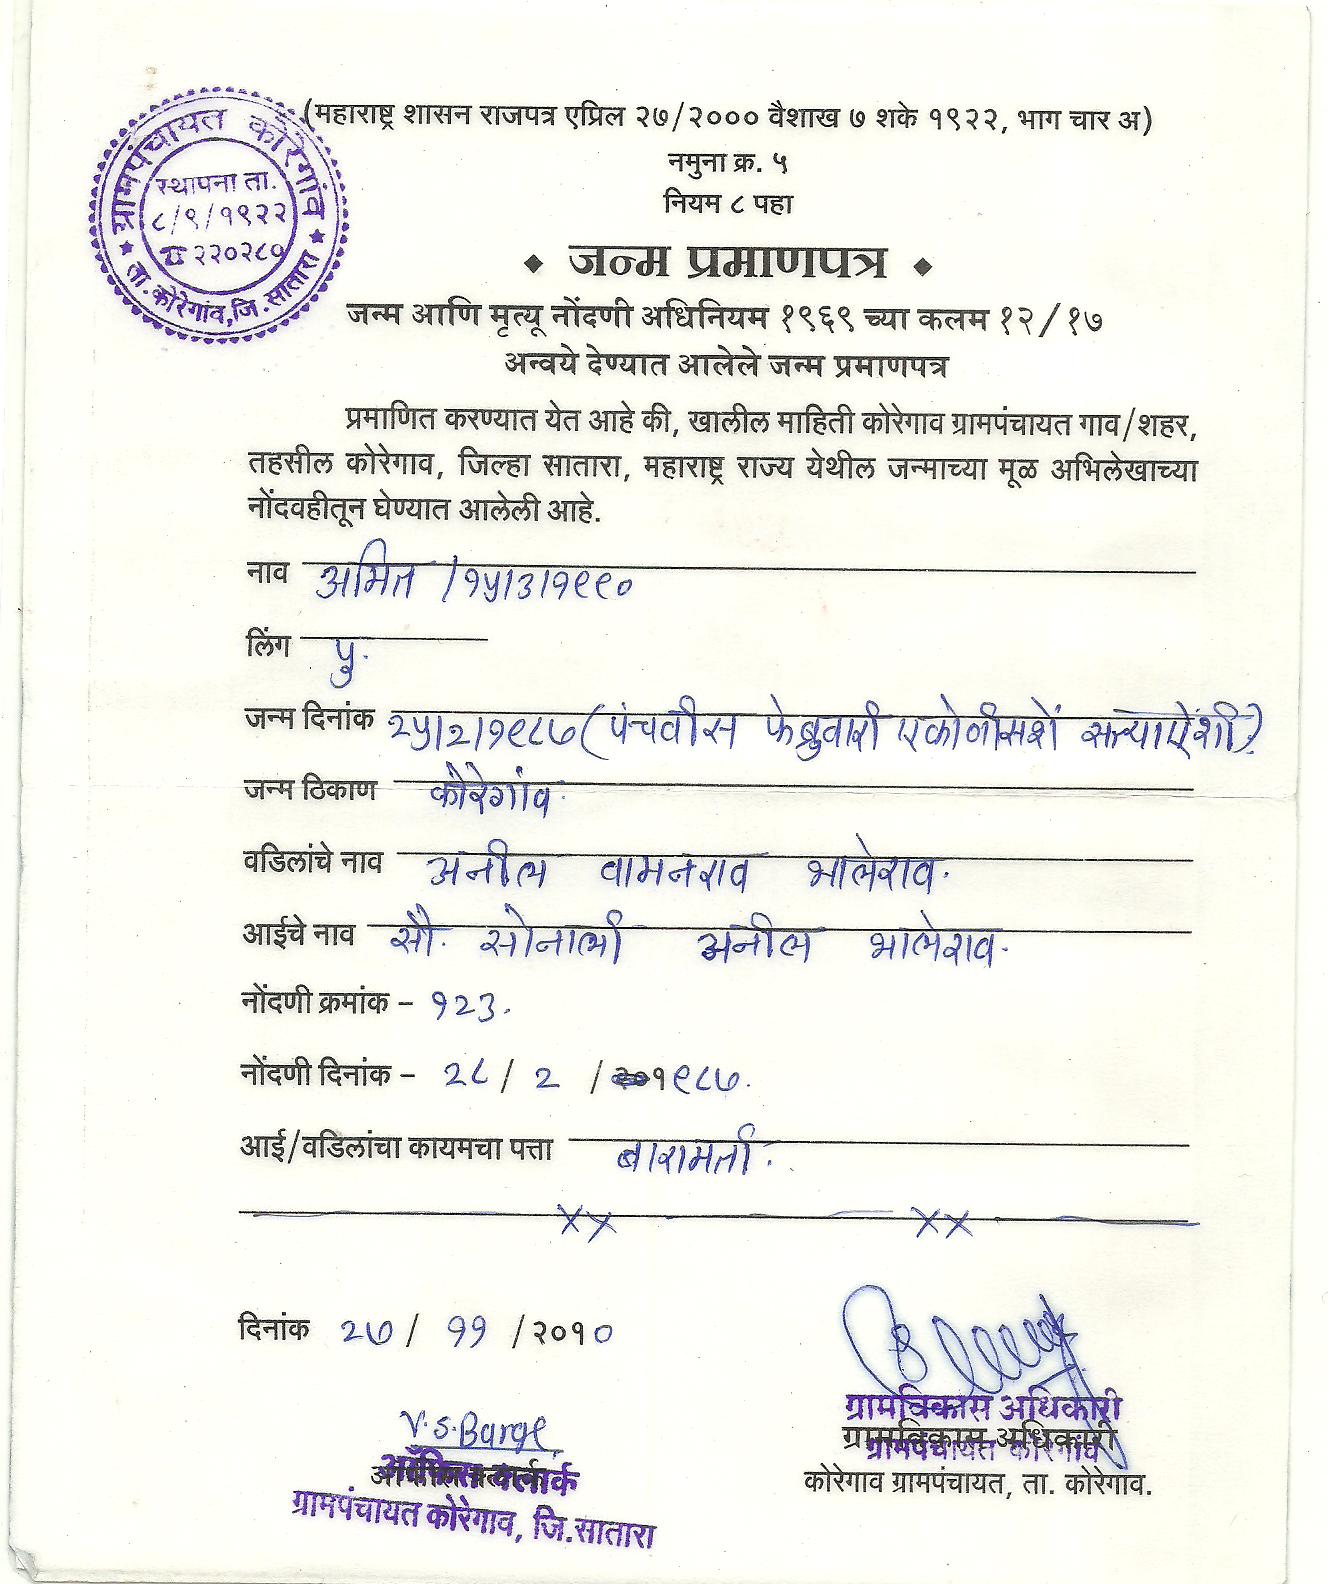 ग्रामपंचायत कोरेगांव
स्थापना ता.
८/९/१९२२
☎ २२०२८०
★ ता.कोरेगांव,जि.सातारा ★
(महाराष्ट्र शासन राजपत्र एप्रिल २७/२००० वैशाख ७ शके १९२२, भाग चार अ)
नमुना क्र. ५
नियम ८ पहा
◆ जन्म प्रमाणपत्र ◆
जन्म आणि मृत्यू नोंदणी अधिनियम १९६९ च्या कलम १२/१७
अन्वये देण्यात आलेले जन्म प्रमाणपत्र
प्रमाणित करण्यात येत आहे की, खालील माहिती कोरेगाव ग्रामपंचायत गाव/शहर,
तहसील कोरेगाव, जिल्हा सातारा, महाराष्ट्र राज्य येथील जन्माच्या मूळ अभिलेखाच्या
नोंदवहीतून घेण्यात आलेली आहे.
नाव अमित /१५/३/१९९०
लिंग पु.
जन्म दिनांक २५/२/१९८७ (पंचवीस फेब्रुवारी एकोणीसशें सत्त्याऐंशी)
जन्म ठिकाण कोरेगांव.
वडिलांचे नाव अनील वामनराव भालेराव.
आईचे नाव सौ. सोनाली अनील भालेराव.
नोंदणी क्रमांक – १२३.
नोंदणी दिनांक – २८ / २ / १९८७.
आई/वडिलांचा कायमचा पत्ता बारामती.
XX XX
दिनांक २७ / ११ / २०१०
V.S.Barge
ऑफिस क्लार्क
ग्रामपंचायत कोरेगाव, जि.सातारा
ग्रामविकास अधिकारी
ग्रामविकास अधिकारी
ग्रामपंचायत कोरेगांव
कोरेगाव ग्रामपंचायत, ता. कोरेगाव.